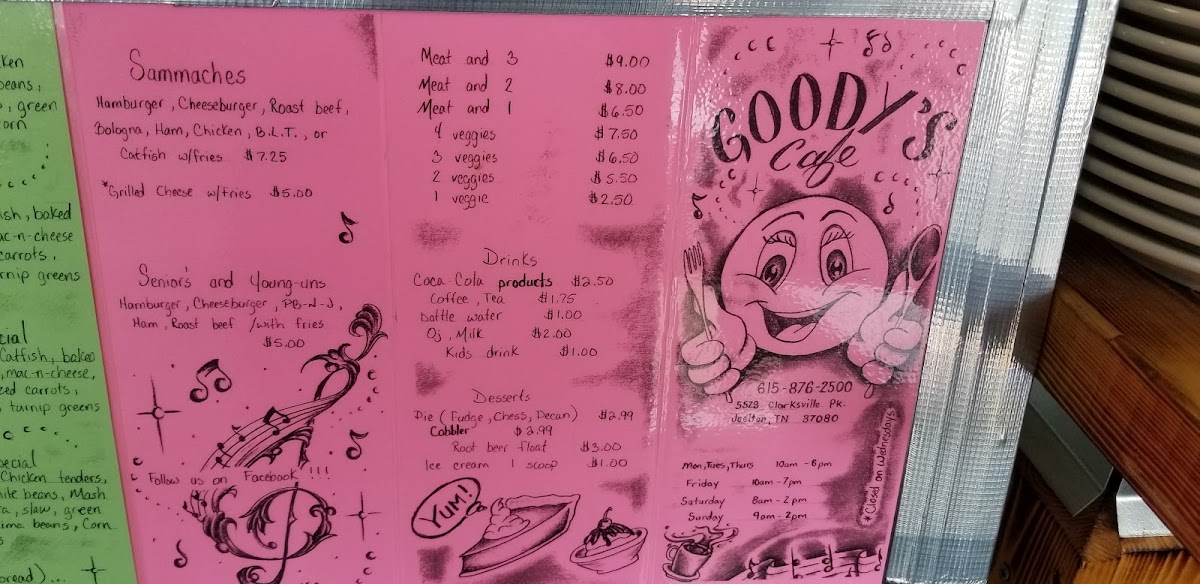 ken
beans,
, green
corn
ish, baked
ac-n-cheese
carrots,
rnip greens
cial
Catfish, baked
, mac-n-cheese,
zed carrots,
, turnip greens
pecial
Chicken tenders,
Mash
, slaw, green
lima beans, Corn
bread)...
Sammaches
Hamburger, Cheeseburger, Roast beef,
Bologna, Ham, Chicken, B.L.T., or
Catfish w/fries $7.25
*Grilled Cheese w/Fries $5.00
Senior's and Young-uns
Hamburger, Cheeseburger, PB-N-J,
Ham, Roast beef /with fries
$5.00
Follow us on Facebook!!!
Meat and 3 $9.00
Meat and 2 $8.00
Meat and 1 $6.50
4 veggies $7.50
3 veggies $6.50
2 veggies $5.50
1 veggie $2.50
Drinks
Coca-Cola products $2.50
Coffee, Tea $1.75
bottle water $1.00
Oj, Milk $2.00
Kids drink $1.00
Desserts
Pie (Fudge, Chess, Pecan) $2.99
Cobbler $3.99
Root beer float $3.00
Ice cream 1 scoop $1.00
YUM!
GOODY'S
Cafe
615-876-2500
5523 Clarksville Pk.
Joelton, TN 37080
Mon, Tues, Thurs 10am - 6pm
Friday 10am - 7pm
Saturday 8am - 2pm
Sunday 9am - 2pm
*Closed on Wednesdays